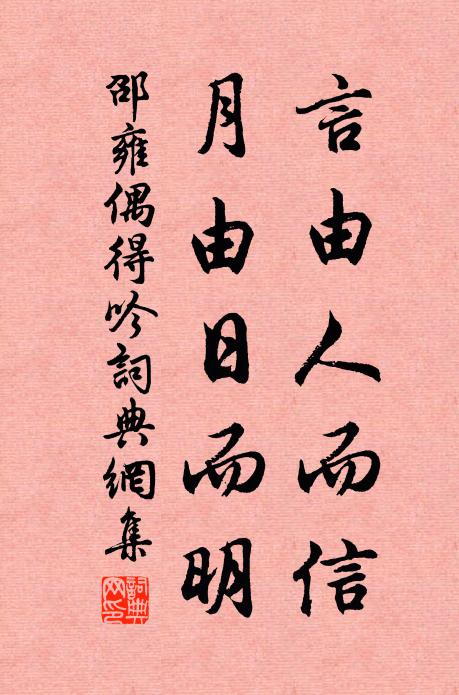 言由人而信
月由日而明
邵雍偶得吟詞典網集
詞典
網印